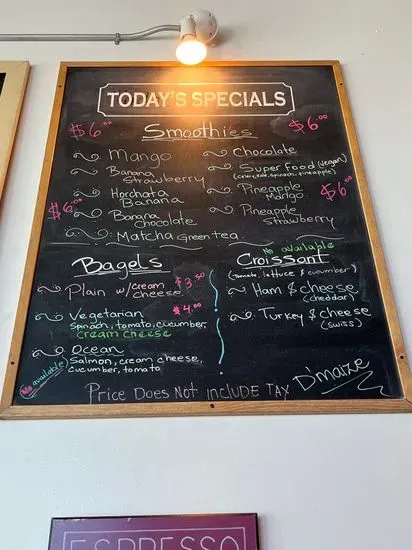 TODAY'S SPECIALS
$6.00
Smoothies
$6.00
Mango
Banana
Strawberry
Horchata
Banana
$6.00
Banana
Chocolate
Matcha Green tea
Chocolate
Super Food (vegan)
Pineapple
Mango
$6.00
Pineapple
Strawberry
Bagels
Plain w/cream
cheese
$3.50
Vegetarian
$4.00
Spinach, tomato, cucumber,
cream cheese
Ocean
Salmon, cream cheese,
cucumber, tomato
Not available
No available
Croissant
(tomato, lettuce & cucumber)
Ham & cheese
(cheddar)
Turkey & cheese
(swiss)
Price Does Not include TAX
D'maize
ESPRESSO